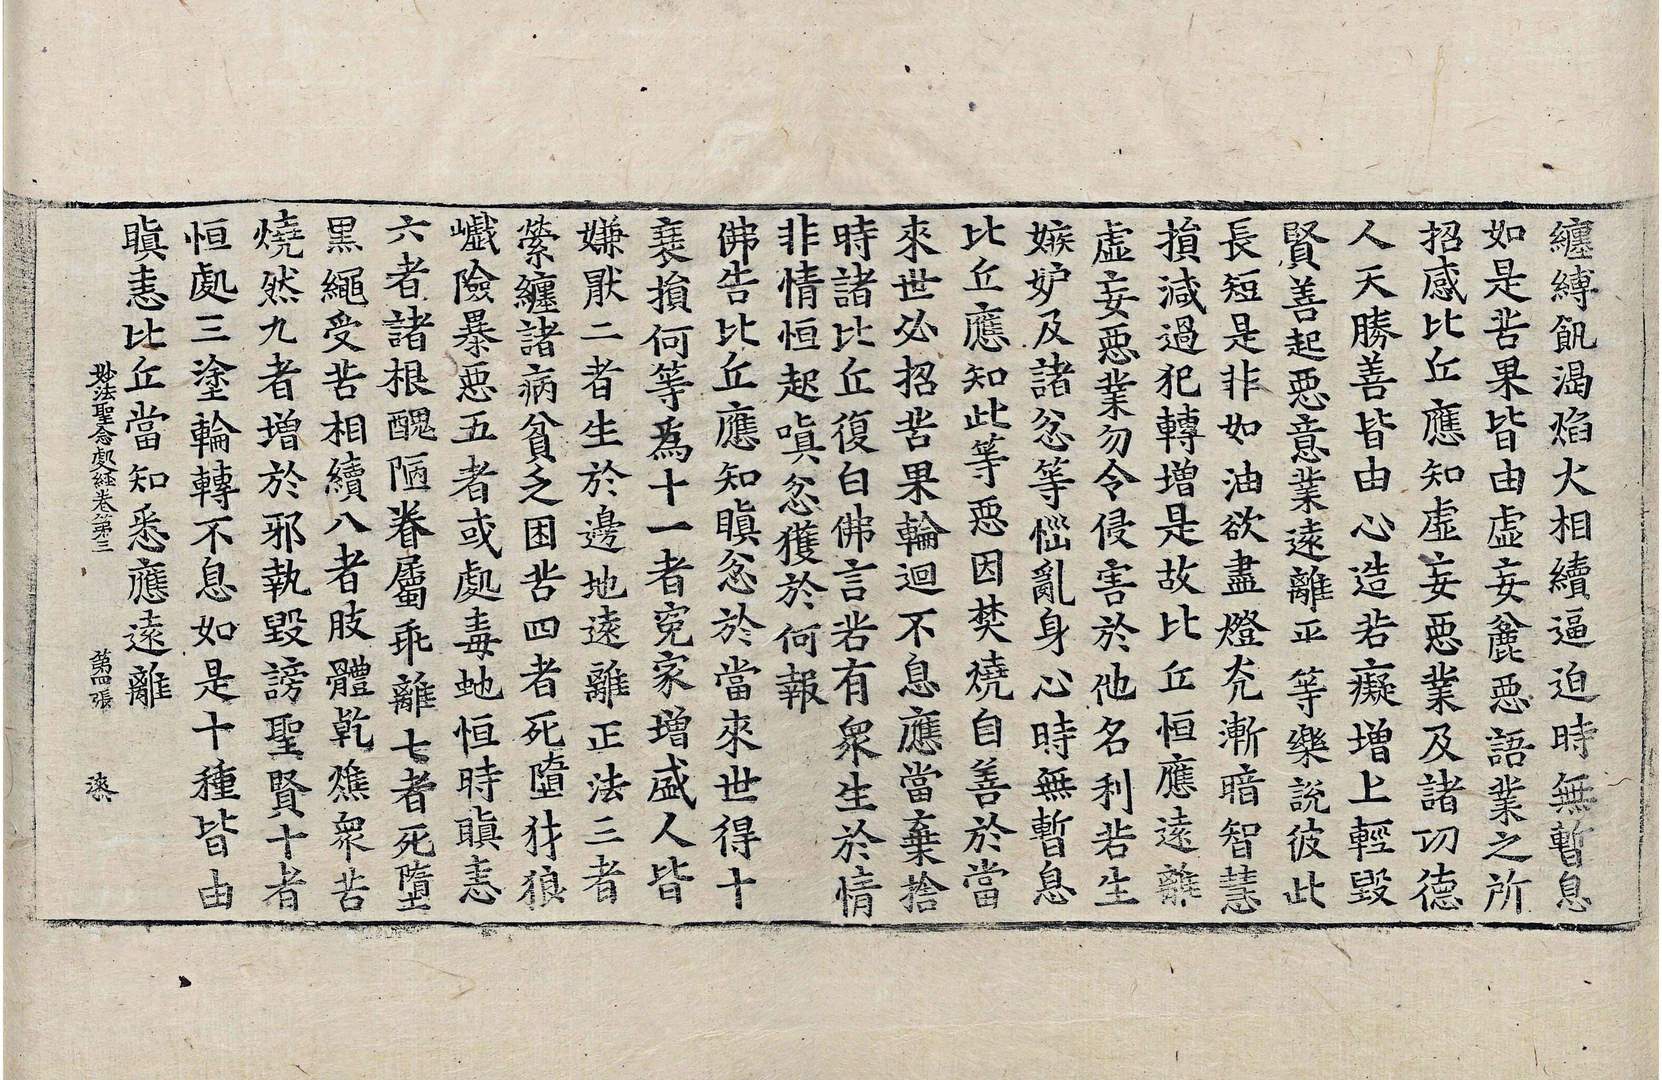 纏縛飢渴焰火相續逼迫時無暫息
如是苦果皆由虛妄麁惡語業之所
招感比丘應知虛妄惡業及諸功德
人天勝善皆由心造若癡增上輕毀
賢善起惡意業遠離平等樂說彼此
長短是非如油欲盡燈光漸暗智慧
損減過犯轉增是故比丘恒應遠離
虛妄惡業勿令侵害於他名利若生
嫉妒及諸忿等惱亂身心時無暫息
比丘應知此等惡因焚燒自善於當
來世必招苦果輪迴不息應當棄捨
時諸比丘復白佛言若有衆生於情
非情恒起嗔忿獲於何報
佛告比丘應知瞋忿於當來世得十
衰損何等為十一者冤家增盛人皆
嫌猒二者生於邊地遠離正法三者
縈纏諸病貧乏困苦四者死墮犲狼
巇險暴惡五者或處毒虵恒時瞋恚
六者諸根醜陋眷屬乖離七者死墮
黑繩受苦相續八者肢體乾燋衆苦
燒然九者增於邪執毀謗聖賢十者
恒處三塗輪轉不息如是十種皆由
瞋恚比丘當知悉應遠離
妙法聖念處経卷第三　第四張